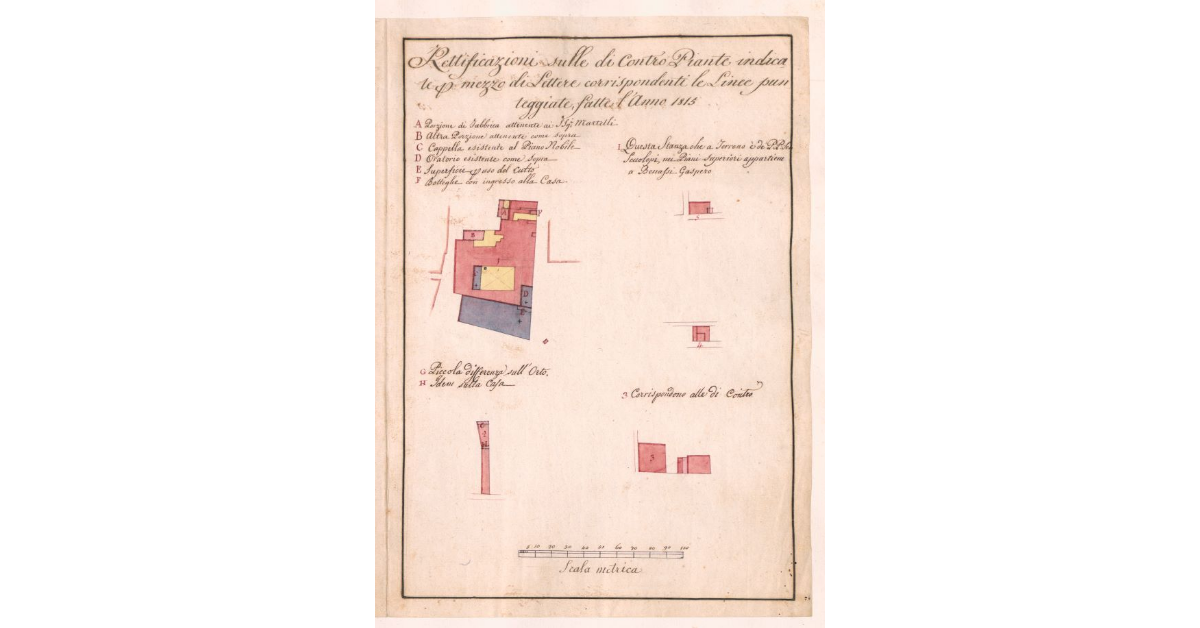 Rettificazioni sulle di Contro Piante indica
te p mezzo di Littere corrispondenti le Linee pun
teggiate fatte l'Anno 1813
A Porzione di Fabbrica attenente ai Sg.i Martelli
B Altra Porzione attenente come sopra
C Cappella esistente al Piano Nobile
D Oratorio esistente come Sopra
E Superficie p uso del Culto
F Botteghe con ingresso alla Casa
I Questa Stanza che a Terreno è de P.P.
Scolopi, nei Piani Superiori appartiene
a Benassi Gaspero
A
F
B
C
1
D
E
5
4
G Piccola differenza sull'Orto.
H Idem sulla Casa
3 Corrispondono alle di Contro
G
2
H
3
5 10 20 30 40 50 60 70 80 90 100
Scala metrica